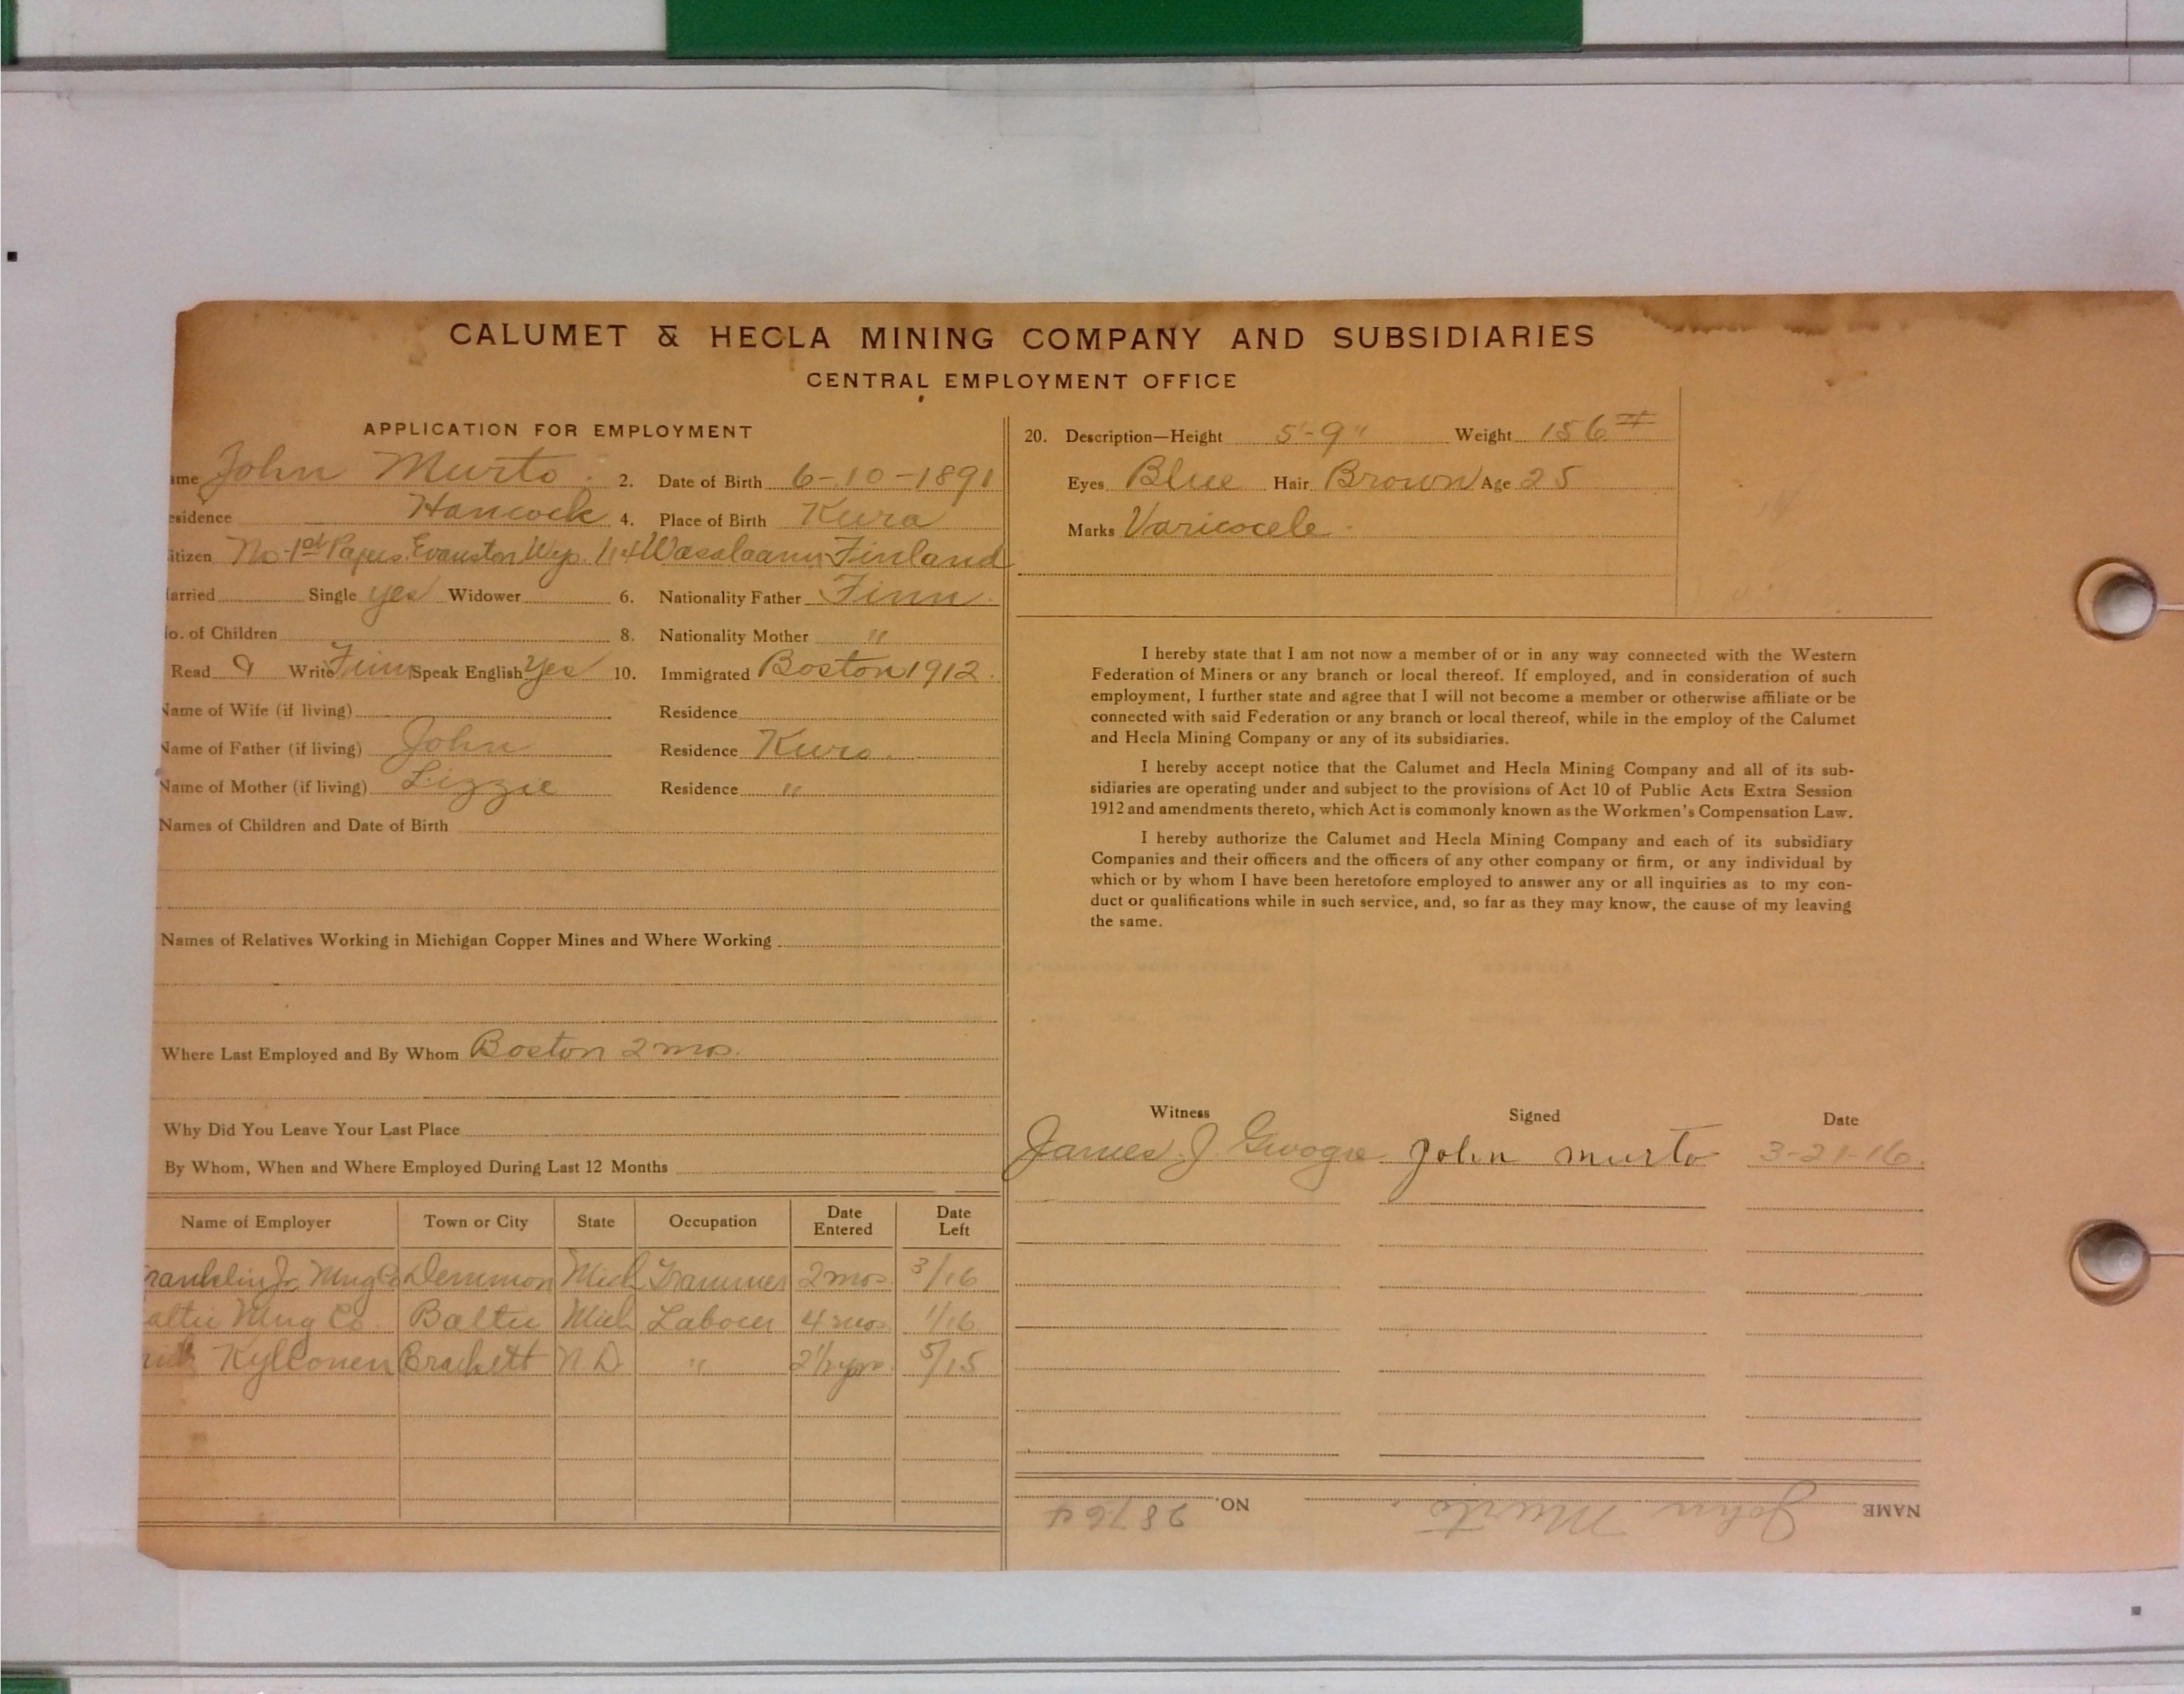 CALUMET & HECLA MINING COMPANY AND SUBSIDIARIES
CENTRAL EMPLOYMENT OFFICE
APPLICATION FOR EMPLOYMENT
ame John Murto. 2. Date of Birth 6-10-1891
esidence Hancock 4. Place of Birth Kura
itizen No 1st Papers. Evanston Wyo. Wasalaani Finland
arried Single yes Widower 6. Nationality Father Finn.
o. of Children 8. Nationality Mother "
Read & Write Finn Speak English Yes 10. Immigrated Boston 1912.
Name of Wife (if living) Residence
Name of Father (if living) John Residence Kura.
Name of Mother (if living) Lizzie Residence "
Names of Children and Date of Birth
Names of Relatives Working in Michigan Copper Mines and Where Working
Where Last Employed and By Whom Boston 2 mos.
Why Did You Leave Your Last Place
By Whom, When and Where Employed During Last 12 Months
Name of Employer Town or City State Occupation Date Entered Date Left
ranklin Jr. Mng Co Demmon Mich Trammer 2 mos. 3/16
altic Mng Co. Baltic Mich Labour 4 mos. 1/16
Kyllonen Brackett N.D. " 2 1/2 yrs. 5/15
20. Description—Height 5'-9" Weight 156 #
Eyes Blue Hair Brown Age 25
Marks Varicocele.
I hereby state that I am not now a member of or in any way connected with the Western
Federation of Miners or any branch or local thereof. If employed, and in consideration of such
employment, I further state and agree that I will not become a member or otherwise affiliate or be
connected with said Federation or any branch or local thereof, while in the employ of the Calumet
and Hecla Mining Company or any of its subsidiaries.
I hereby accept notice that the Calumet and Hecla Mining Company and all of its sub-
sidiaries are operating under and subject to the provisions of Act 10 of Public Acts Extra Session
1912 and amendments thereto, which Act is commonly known as the Workmen's Compensation Law.
I hereby authorize the Calumet and Hecla Mining Company and each of its subsidiary
Companies and their officers and the officers of any other company or firm, or any individual by
which or by whom I have been heretofore employed to answer any or all inquiries as to my con-
duct or qualifications while in such service, and, so far as they may know, the cause of my leaving
the same.
Witness Signed Date
James J. John murto 3-21-16.
NAME John Murto. NO. 28764